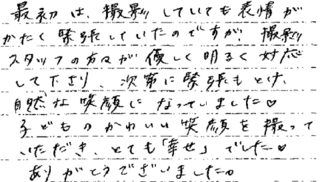 最初は、撮影していても表情が
かたく緊張していたのですが、撮影
スタッフの方々が優しく明るく対応
して下さり、次第に緊張もとけ、
自然な笑顔になっていました♡
子どものかわいい笑顔を撮って
いただき、とても「幸せ」でした♡
ありがとうございました。